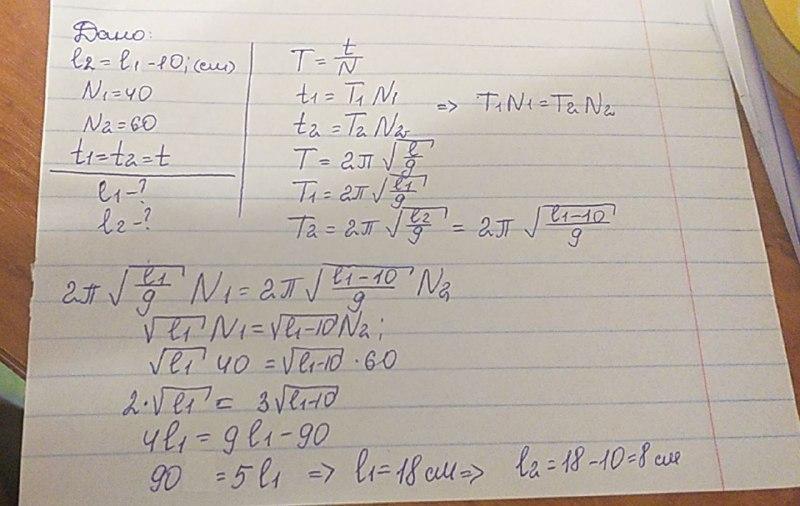 Дано:
l2 = l1 - 10; (см)
N1 = 40
N2 = 60
t1 = t2 = t
l1 - ?
l2 - ?
T = t/N
t1 = T1 N1
t2 = T2 N2 => T1N1 = T2N2
T = 2π √(l/g)
T1 = 2π √(l1/g)
T2 = 2π √(l2/g) = 2π √((l1-10)/g)
2π √(l1/g) N1 = 2π √((l1-10)/g) N2
√l1 N1 = √(l1-10) N2;
√l1 40 = √(l1-10) · 60
2·√l1 = 3√(l1-10)
4l1 = 9l1 - 90
90 = 5l1 => l1 = 18 см => l2 = 18 - 10 = 8 см